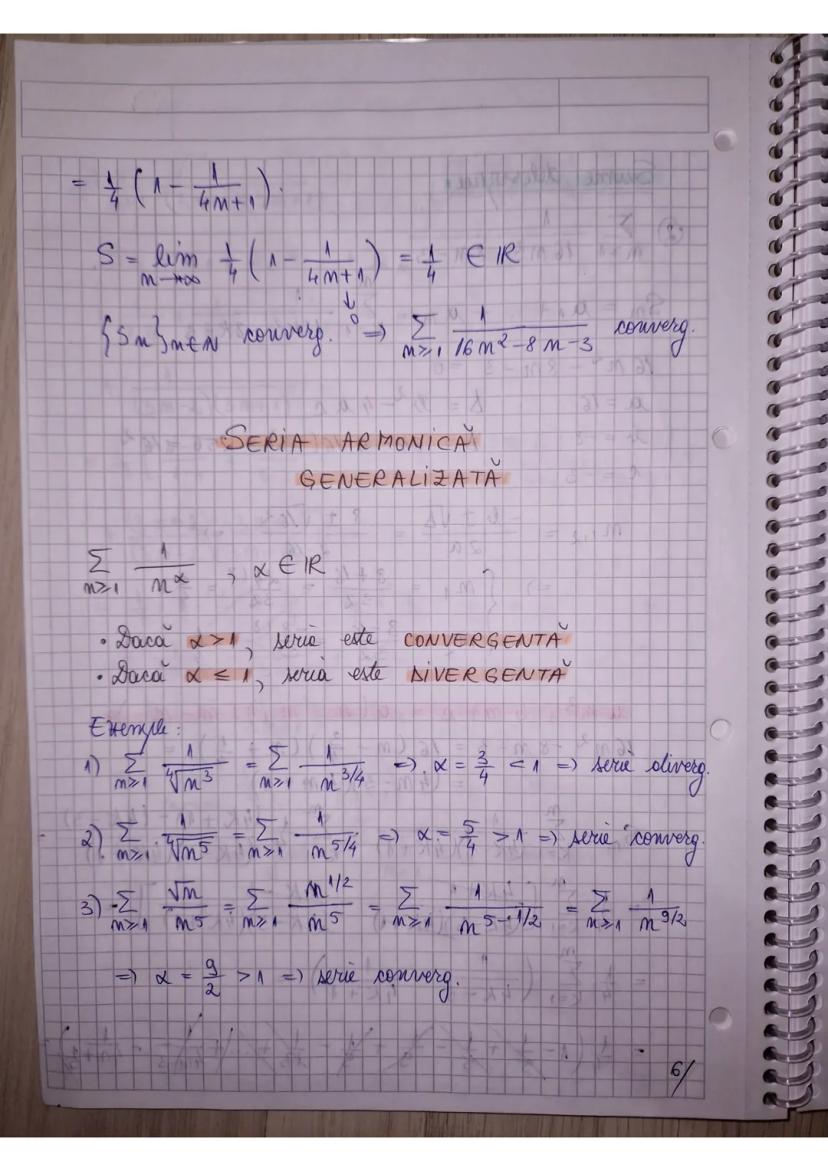 = 1/4 (1 - 1/(4n+1)).
S = lim n→+∞ 1/4 (1 - 1/(4n+1)) = 1/4 ∈ IR
↓ 0
{Sn}n∈N converg. => ∑ n≥1 1/(16n² - 8n - 3) converg.
SERIA ARMONICĂ
GENERALIZATĂ
∑ n≥1 1/n^α , α ∈ IR
• Dacă α > 1, seria este CONVERGENTĂ
• Dacă α ≤ 1, seria este DIVERGENTĂ
Exemple:
1) ∑ n≥1 1/⁴√n³ = ∑ n≥1 1/n^3/4 => α = 3/4 < 1 => serie diverg.
2) ∑ n≥1 1/⁴√n⁵ = ∑ n≥1 1/n^5/4 => α = 5/4 > 1 => serie converg.
3) ∑ n≥1 √n/n⁵ = ∑ n≥1 n^1/2/n⁵ = ∑ n≥1 1/n^(5-1/2) = ∑ n≥1 1/n^9/2
=> α = 9/2 > 1 => serie converg.
6/